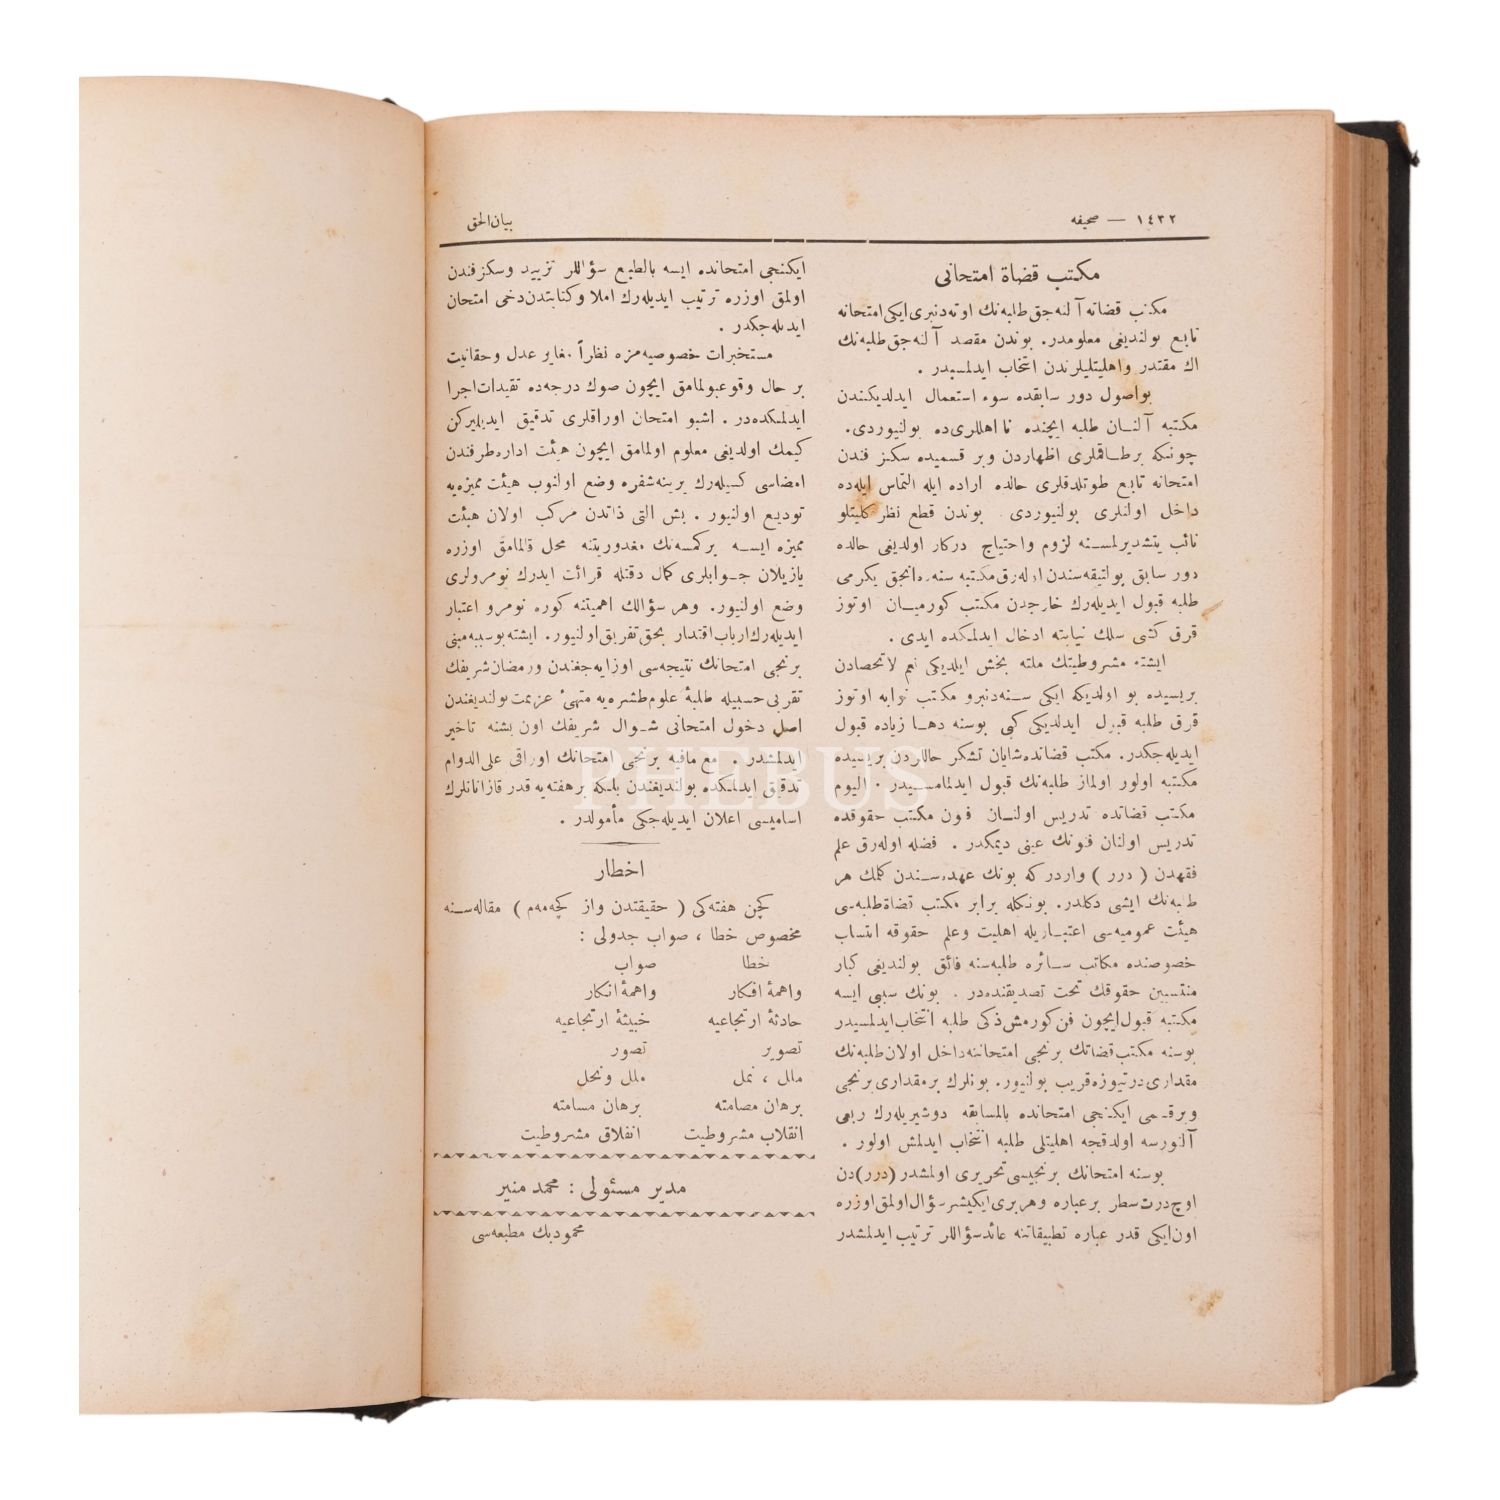 ١٤٣٢ — صحيفه
بيان الحق
مكتب قضاة امتحانى
مكتب قضاته آلنه‌جق طلبه‌نك اوته‌دنبرى ايكى امتحانه
تابع بولنديغى معلومدر. بوندن مقصد آلنه‌جق طلبه‌نك
اك مقتدر واهليتليلرندن انتخاب ايدلمسيدر .
بواصول دور سابقده سوء استعمال ايدلديكندن
مكتبه آلنان طلبه ايچنده نا اهللرى‌ده بولنيوردى.
چونكه برطاقملرى اظهاردن وبر قسميده سكز فندن
امتحانه تابع طوتلدقلرى حالده اراده ايله التماس ايله‌ده
داخل اولنلرى بولنيوردى . بوندن قطع نظر كليتلو
نائب يتشديرلمسنه لزوم واحتياج دركار اولديغى حالده
دور سابق بولتيقه‌سندن اوله‌رق مكتبه سنه‌ده انجق يكرمى
طلبه قبول ايديله‌رك خارجدن مكتب كورميان اوتوز
قرق كشى سلك نيابته ادخال ايدلمكده ايدى .
ايشته مشروطيتك ملته بخش ايلديكى نعم لاتحصادن
بريسيده بو اولديكه ايكى سنه‌دنبرو مكتب نوابه اوتوز
قرق طلبه قبول ايدلديكى كبى بوسنه دها زياده قبول
ايديله‌جكدر. مكتب قضاتده‌شايان تشكر حاللردن بريسيده
مكتبه اولور اولماز طلبه‌نك قبول ايدلمامسيدر . اليوم
مكتب قضاتده تدريس اولنان فنون مكتب حقوقده
تدريس اولنان فنونك عينى ديمكدر . فضله اوله‌رق علم
فقهدن ( درر ) واردر كه بونك عهده‌سندن كلمك هر
طلبه‌نك ايشى دكلدر. بونكله برابر مكتب قضاة طلبه‌سى
هيئت عموميه‌سى اعتباريله اهليت وعلم حقوقه انتساب
خصوصنده مكاتب سائره طلبه‌سنه فائق بولنديغى كبار
منتسبين حقوقك تحت تصديقنده‌در . بونك سببى ايسه
مكتبه قبول ايچون فن كورمش ذكى طلبه انتخاب ايدلمسيدر
بوسنه مكتب قضاتك برنجى امتحاننه داخل اولان طلبه‌نك
مقدارى درتيوزه قريب بولنيور. بونلرك برمقدارى برنجى
وبرقسمى ايكنجى امتحانده بالمسابقه دوشيريله‌رك ربعى
آلنورسه اولدقجه اهليتلى طلبه انتخاب ايدلمش اولور .
بوسنه امتحانك برنجيسى تحريرى اولمشدر (درر) دن
اوچ درت سطر برعباره وهربرى ايكيشر سؤال اولمق اوزره
اون ايكى قدر عباره تطبيقاتنه عائد سؤاللر ترتيب ايدلمشدر
ايكنجى امتحانده ايسه بالطبع سؤاللر تزييد وسكز فندن
اولمق اوزره ترتيب ايديله‌رك املا وكتابتدن دخى امتحان
ايديله‌جكدر .
مستخبرات خصوصيه‌مزه نظراً مغاير عدل وحقانيت
بر حال وقوعبولمامق ايچون صوك درجه‌ده تقيدات اجرا
ايدلمكده‌در . اشبو امتحان اوراقلرى تدقيق ايديليركن
كيمك اولديغى معلوم اولمامق ايچون هيئت اداره طرفندن
امضاسى كسيله‌رك يرينه شفره وضع اولنوب هيئت مميزه‌يه
توديع اولنيور . بش التى ذاتدن مركب اولان هيئت
مميزه ايسه بركمسه‌نك مغدوريتنه محل قالمامق اوزره
يازيلان جوابلرى كمال دقتله قرائت ايدرك نومرولرى
وضع اولنيور. وهر سؤالك اهميتنه كوره نومرو اعتبار
ايديله‌رك ارباب اقتدار بحق تفريق اولنيور. ايشته بوسببه مبنى
برنجى امتحانك نتيجه‌سى اوزايه‌جغندن ورمضان شريفك
تقربى حسبيله طلبۀ علوم طشره‌يه متهئ عزيمت بولنديغندن
اصل دخول امتحانى شوال شريفك اون بشنه تاخير
ايدلمشدر . مع مافيه برنجى امتحانك اوراقى على الدوام
تدقيق ايدلمكده بولنديغندن بلكه برهفته‌يه قدر قازانانلرك
اساميسى اعلان ايديله‌جكى مأمولدر .
اخطار
كچن هفته‌كى ( حقيقتدن واز كچه‌مه‌م ) مقاله‌سنه
مخصوص خطا ، صواب جدولى :
خطا صواب
واهمۀ افكار واهمۀ انكار
حادثۀ ارتجاعيه خبيثۀ ارتجاعيه
تصوير تصور
مالل ، نمل ملل ونحل
برهان مصامته برهان مسامته
انقلاب مشروطيت انفلاق مشروطيت
مدير مسئولى : محمد منير
محمود بك مطبعه‌سى
PHEBUS